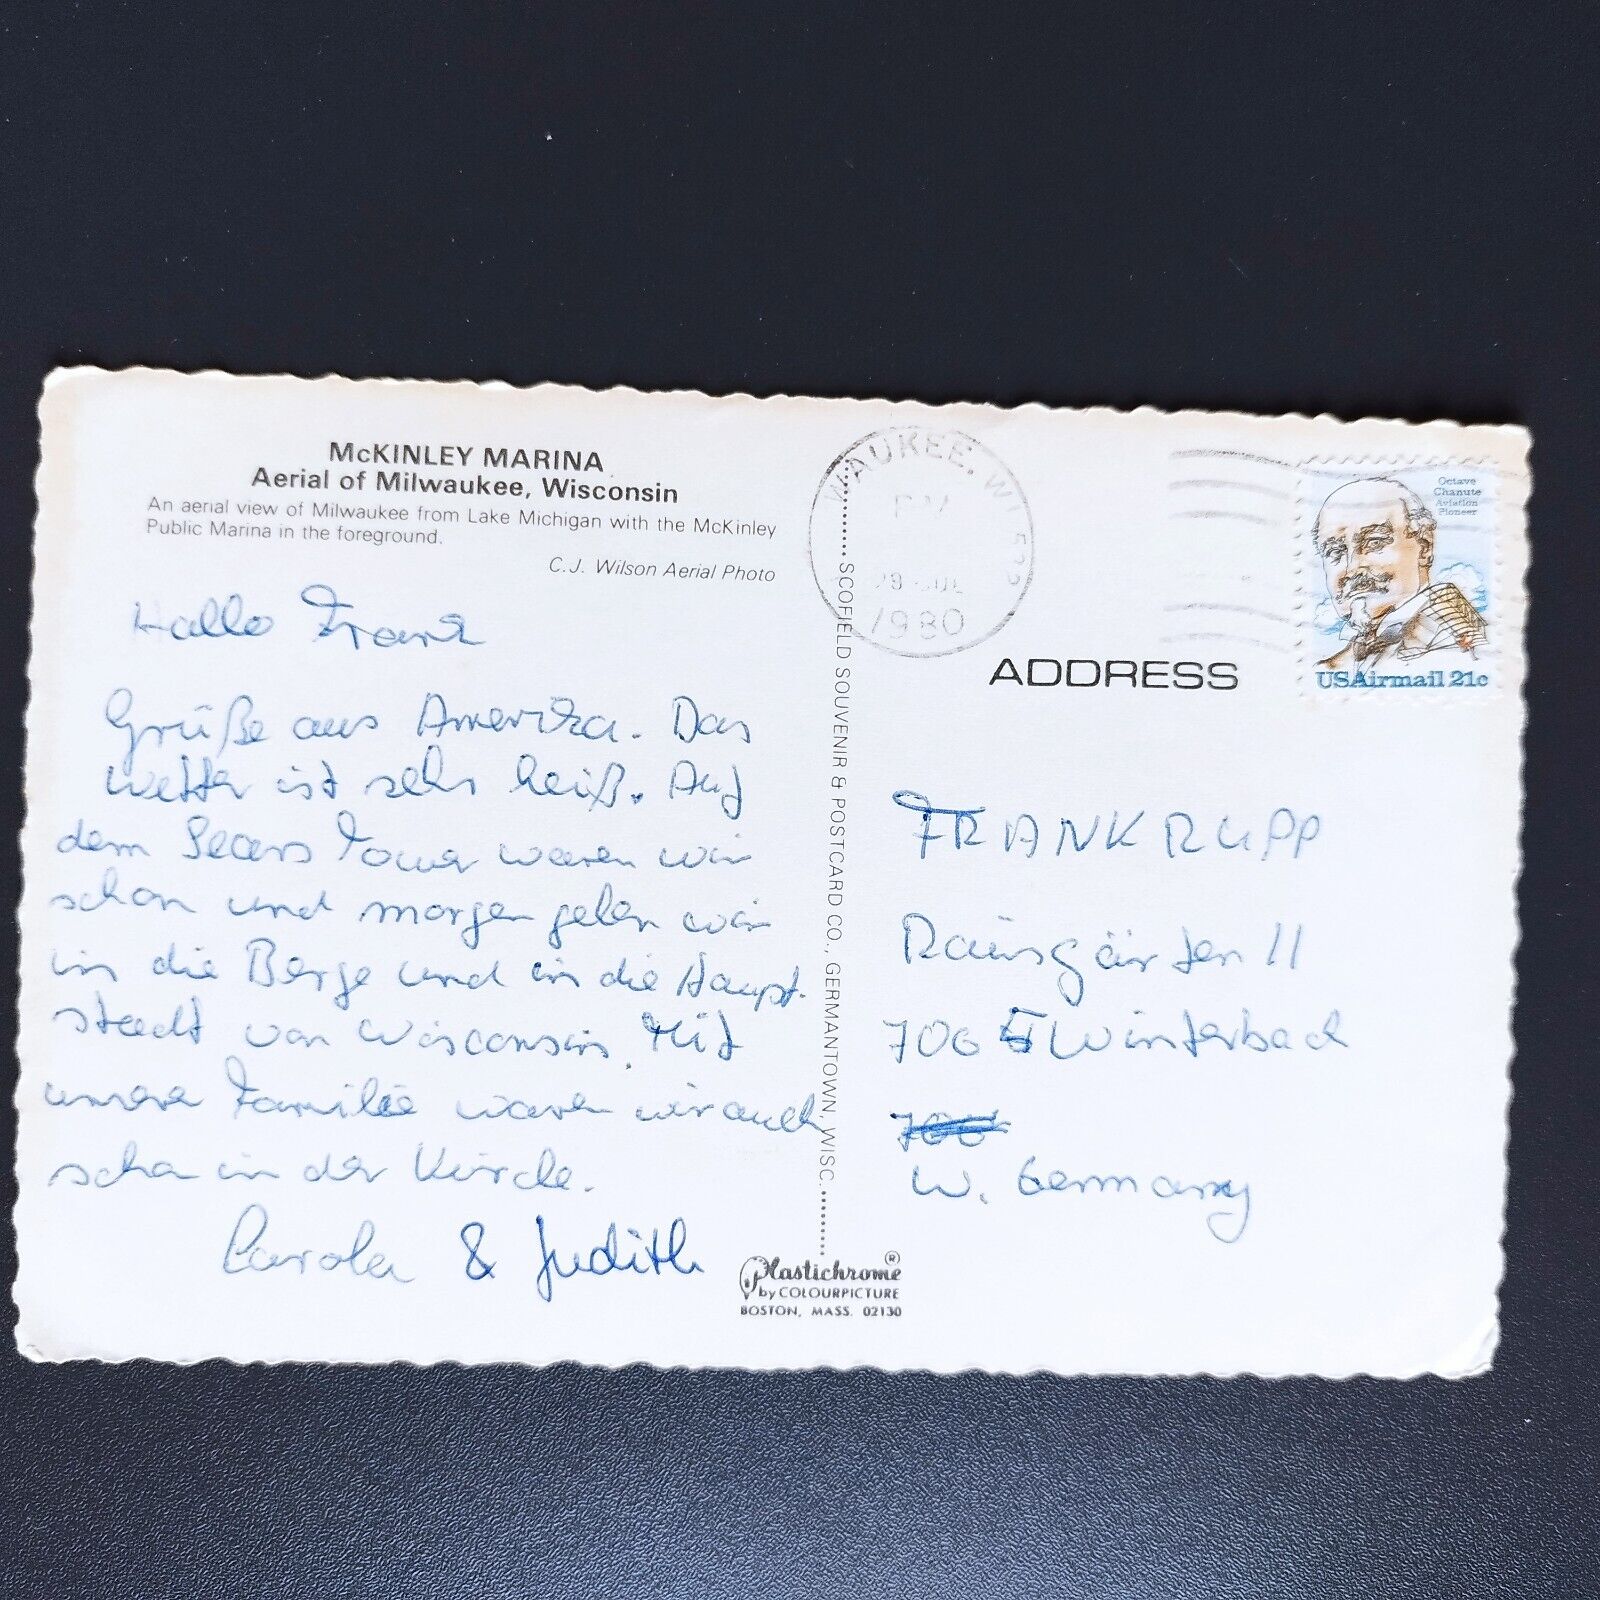 McKINLEY MARINA
Aerial of Milwaukee, Wisconsin
An aerial view of Milwaukee from Lake Michigan with the McKinley
Public Marina in the foreground.
C.J. Wilson Aerial Photo
Hallo Frank
Grüße aus Amerika. Das
Wetter ist sehr heiß. Auf
dem Sears Tower waren wir
schon und morgen gehen wir
in die Berge und in die Haupt-
stadt von Wisconsin. Mit
unserer Familie waren wir auch
schon in der Kirche.
Carola & Judith
SCOFIELD SOUVENIR & POSTCARD CO., GERMANTOWN, WISC.
Plastichrome®
by COLOURPICTURE
BOSTON, MASS. 02130
WAUKEE, WI 532
PM
28 JUL
1980
Octave
Chanute
Aviation
Pioneer
USAirmail 21c
ADDRESS
FRANK RUPP
Raingärten 11
7065 Winterbach
706
W. Germany